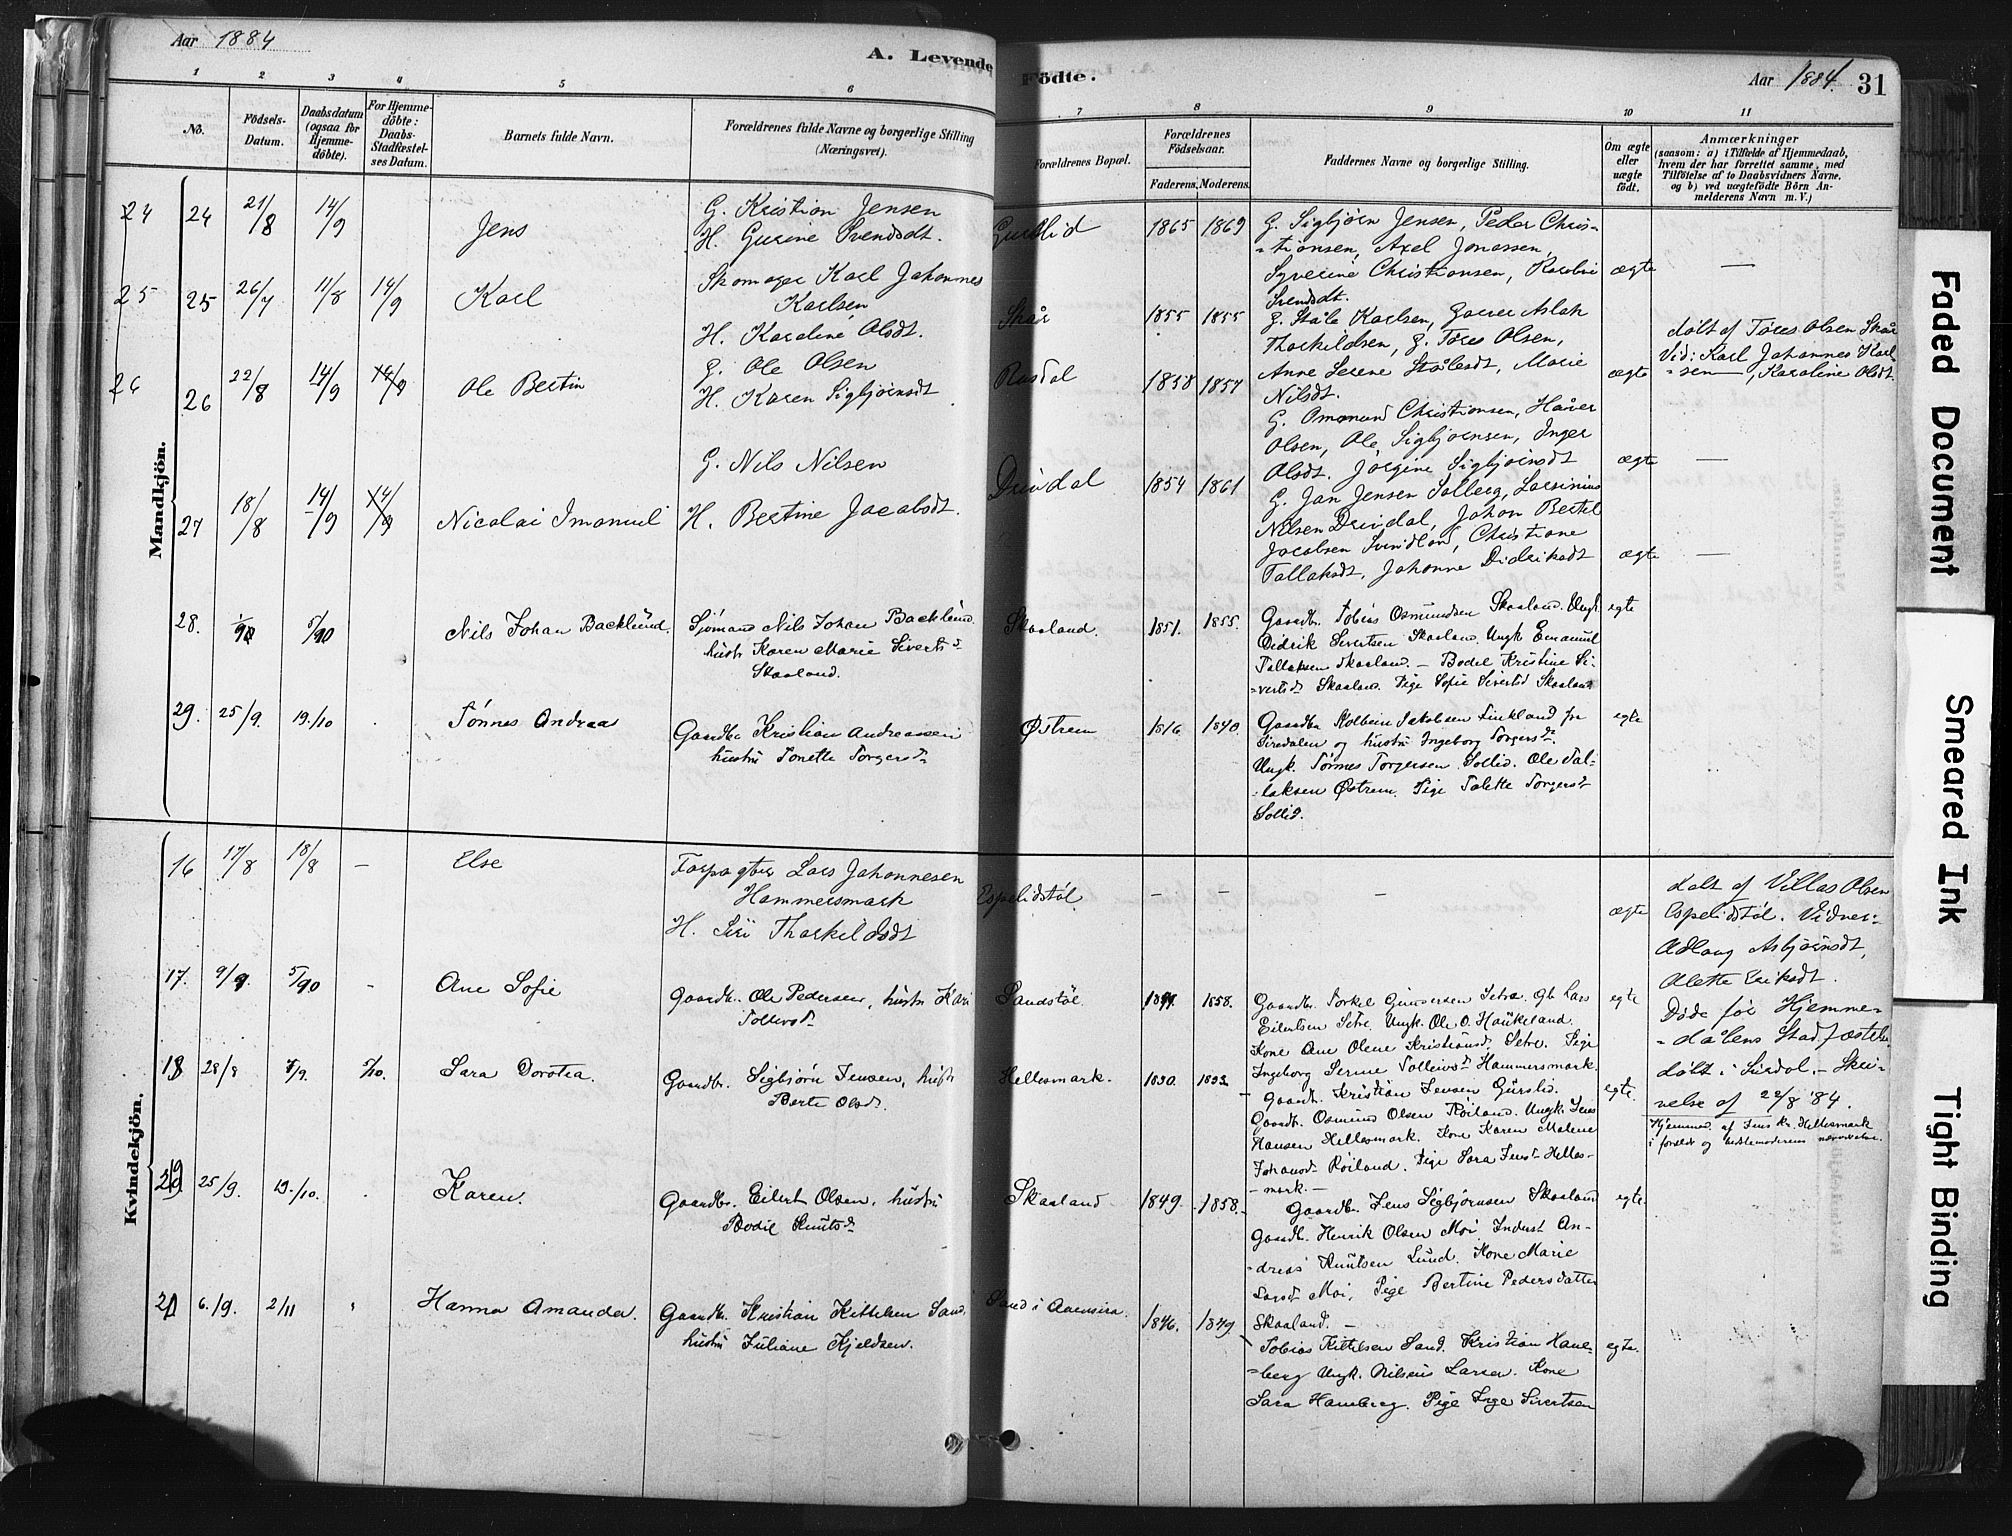 Aar 1884
A. Levende Födte.
Aar 1884. 31
1 2 3 4 5 6 7 8 9 10 11
No.
Födsels-
Datum.
Daabsdatum
(ogsaa for
Hjemme-
döbte).
For Hjemme-
döbte:
Daabs-
Stadfæstel-
ses Datum.
Barnets fulde Navn.
Forældrenes fulde Navne og borgerlige Stilling
(Næringsvei).
Forældrenes Bopæl.
Forældrenes
Födselsaar.
Faderens. Moderens.
Faddernes Navne og borgerlige Stilling.
Om ægte
eller
uægte
födt.
Anmærkninger
(saasom: a) i Tilfælde af Hjemmedaab,
hvem der har forrettet samme, med
Tilföielse af to Daabsvidners Navne,
og b) ved uægtefödte Börn An-
melderens Navn m. V.)
Mandkjön.
24 24 21/8 14/9 Jens
G. Kristian Jensen
H. Gurine Svendsdt.
1865 1869
G. Sigbjörn Jensen, Peder Chris-
-tiansen, Axel Jonassen,
Syverine Christiansen, Karoline
Svendsdt.
ægte —
25 25 26/7 11/8 14/9 Karl
Skomager Karl Johannes
Karlsen
H. Karoline Olsdt.
Skår 1855 1855
G. Ståle Karlsen, Aslak
Thorkildsen, G. Töres Olsen,
Anne Serene Stålesdt, Marie
Nilsdt.
ægte
døbt af Töres Olsen Skår
Vid: Karl Johannes Karl
-sen —, Karoline Olsdt.
26 26 22/8 14/9 14/9 Ole Bertin
G. Ole Olsen
H. Karen Sigbjörnsdt
Rusdal 1858 1857
G. Omund Christiansen, Håver
Olsen, Ole Sigbjörnsen, Inger
Olsdt. Jörgine Sigbjörnsdt
ægte —
27 18/8 14/9 14/9 Nicolai Imanuel
G. Nils Nilsen
H. Bertine Jacobsdt.
Drivdal 1854 1861
G. Jan Jensen Solberg, Larsinius
Nilsen Drivdal, Johan Bertel
Jacobsen Svindland, Christiane
Tallaksdt, Johanne Didriksdt
ægte —
28. 5/90 Nils Johan Backlund.
Sjömand Nils Johan Backlund.
hustr Karen Marie Siverts d
Skaaland.
Skaaland. 1851. 1855.
Gaardbr. Tobias Osmundsen Skaaland. Ungk.
Didrik Sivertsen Skaaland Ungk Emanuel
Tallaksen Skaaland. — Bodel Kristine Si-
-vertsd Skaaland. Pige Sofie Sivertsd Skaaland
egte
29. 25/9. 19./10 Tönnes Andreas
Gaardbr Kristian Andreassen
hustru Tonette Torgersd
Østrem 1816 1840.
Gaardbr Kolbein Jakobsen Finkland fra
Siredalen og hustru Ingeborg Torgersd.
Ungk. Tönnes Torgersen Sollid. Ole Tal-
-laksen Østrem. Pige Talette Torgersd
Sollid.
egte
Kvindekjön.
16 17/8 18/8 — Else
Forpagter Lars Johannesen
Hammersmark
H. Siri Thorkildsdt
Espelidstöl — — —
ægte
døbt af Villas Olsen
Espelidstöl. Vidner:
Adlaug Asbjörnsdt,
Alette Eriksdt.
Döde før Hjemme-
-dåbens Stadfæstelse
døbt i Sirdal. — Skri-
velse af 22/8 '84.
17. 9/9. 5/90 - Ane Sofie
Gaardbr. Ole Pedersen, hustru Kari
Tollevsd
Sandstöl. 1858.
Gaardbr. Torkel Gundersen Setra. Gb Lars
Eilertsen Setre. Ungk. Ole O. Haukeland.
Kone Ane Olene Kristiansd. Setre. Pige
Ingeborg Serine Tolleivsd Hammersmark.
egte
18 28/8 /9. 5/10. Sara Dorotea.
Gaardbr. Sigbjörn Jensen, hustr
Berte Olsd.
Hellesmark. 1830. 1833.
Gaardb. Kristian Jensen Gursled.
Gaardb. Osmund Olsen Röiland. Ungk. Jens
Hansen Hellesmark. Kone Karen Malene
Johansd Röiland. Pige Sara Jensd Helles-
-mark. —
egte.
Hjemmed. af Jens Kr. Hellesmark
i foreldr og bedstemoderens nærværelse.
19 25/9. 19./10. Karen.
Gaardbr. Eilert Olsen, hustru
Bodil Knutsd
Skaaland 1849. 1858.
Gaardbr. Jens Sigbjörnsen Skaaland
Gaardb. Henrik Olsen Moi. Inderst An-
-dreas Knutsen Lund. Kone Marie
Moi, Pige Bertine Pedersdatter
Skaaland. —
egte.
20 6./9. 2/11 Hanna Amanda.
Gaardbr. Kristian Kittelsen Sand
hustru Juliane Kjeldsen.
Sand i Aaensira. 1846. 1849.
Tobias Kittelsen Sand. Kristian Haue-
-berg Ungk. Nilsens Larsen. Kone
Sara Haueberg. Pige Inge Sivertsen
egte.
Faded Document
Smeared Ink
Tight Binding